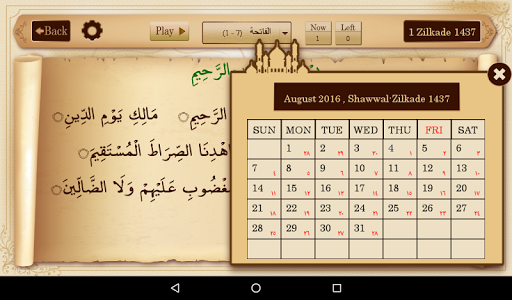 Back
Play
الفاتحة (1 - 7)
Now
Left
1
0
1 Zilkade 1437
الرَّحِيمِ
الرَّحِيمِ مَالِكِ يَوْمِ الدِّينِ
اهْدِنَا الصِّرَاطَ الْمُسْتَقِيمَ
الْمَغْضُوبِ عَلَيْهِمْ وَلَا الضَّالِّينَ
August 2016 , Shawwal-Zilkade 1437
SUN MON TUE WED THU FRI SAT
1 ٢٨ 2 ٢٩ 3 ٣٠ 4 ١ 5 ٢ 6 ٣
7 ٤ 8 ٥ 9 ٦ 10 ٧ 11 ٨ 12 ٩ 13 ١٠
14 ١١ 15 ١٢ 16 ١٣ 17 ١٤ 18 ١٥ 19 ١٦ 20 ١٧
21 ١٨ 22 ١٩ 23 ٢٠ 24 ٢١ 25 ٢٢ 26 ٢٣ 27 ٢٤
28 ٢٥ 29 ٢٦ 30 ٢٧ 31 ٢٨